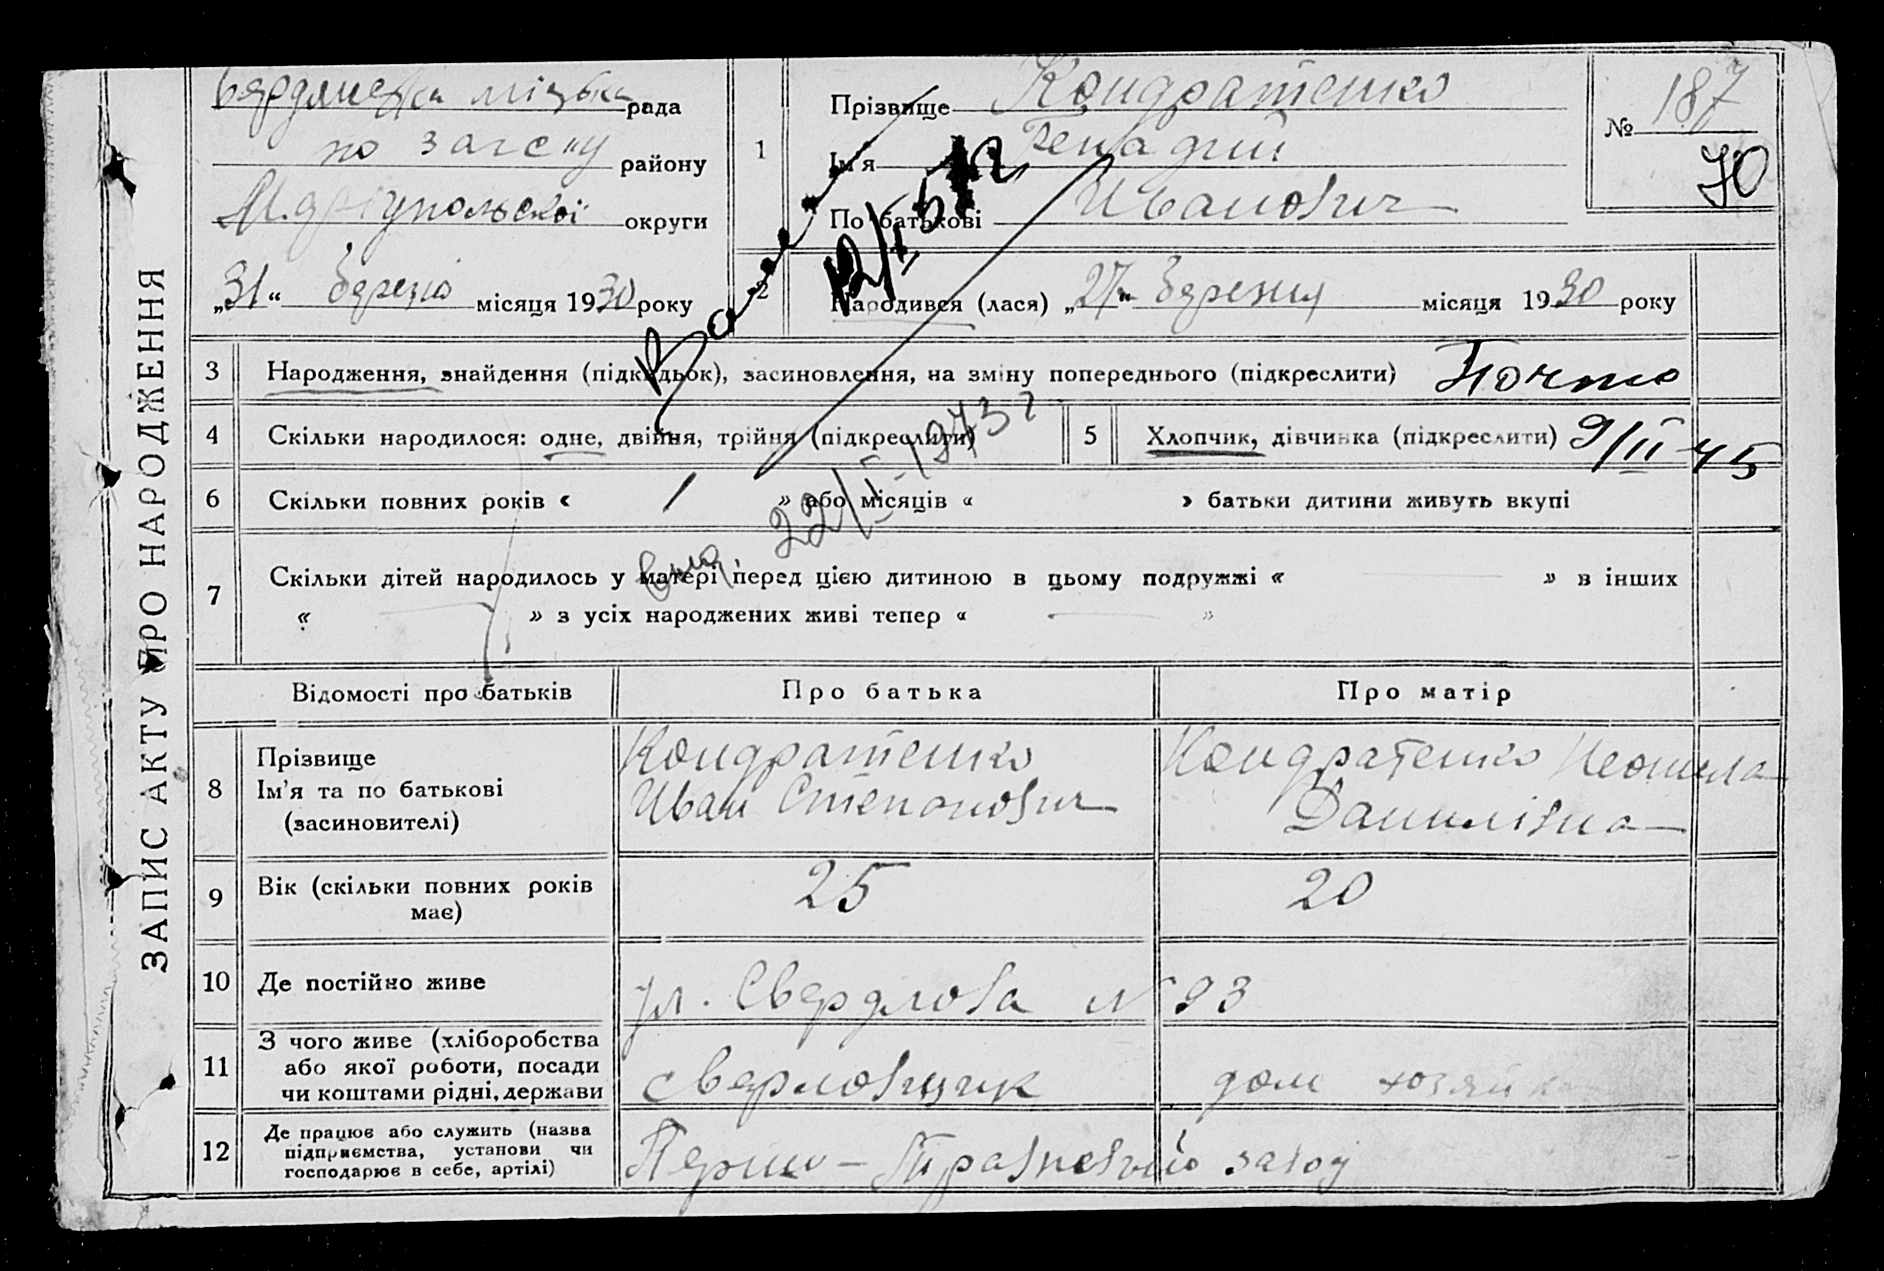 ЗАПИС АКТУ ПРО НАРОДЖЕННЯ
Бердянська міська рада
по загсу району
Маріупольскої округи
„31“ березня місяця 1930 року
1
Прізвище Кондратенко
Ім'я Генадий
По батькові Иванович
№ 187
70
2
Народився (лася) „27“ Березня місяця 1930 року
12/I 52
3 Народження, знайдення (підкидьок), засиновлення, на зміну попереднього (підкреслити) Почто
4 Скільки народилося: одне, двійня, трійня (підкреслити)
5 Хлопчик, дівчинка (підкреслити) 9/II 45
22/I-1973 г
6 Скільки повних років « 1 » або місяців « » батьки дитини живуть вкупі
7 Скільки дітей народилось у матері перед цією дитиною в цьому подружжі « — » в інших
« — » з усіх народжених живі тепер « — »
Відомості про батьків Про батька Про матір
8 Прізвище
Ім'я та по батькові
(засиновителі)
Кондратенко
Иван Степанович
Кондратенко Неонила
Данилівна
9 Вік (скільки повних років
має)
25 20
10 Де постійно живе ул. Свердлова N 93
11 З чого живе (хліборобства
або якої роботи, посади
чи коштами рідні, держави
сверловщик дом хозяйка
12 Де працює або служить (назва
підприємства, установи чи
господарює в себе, артілі)
Першо-Травневый завод